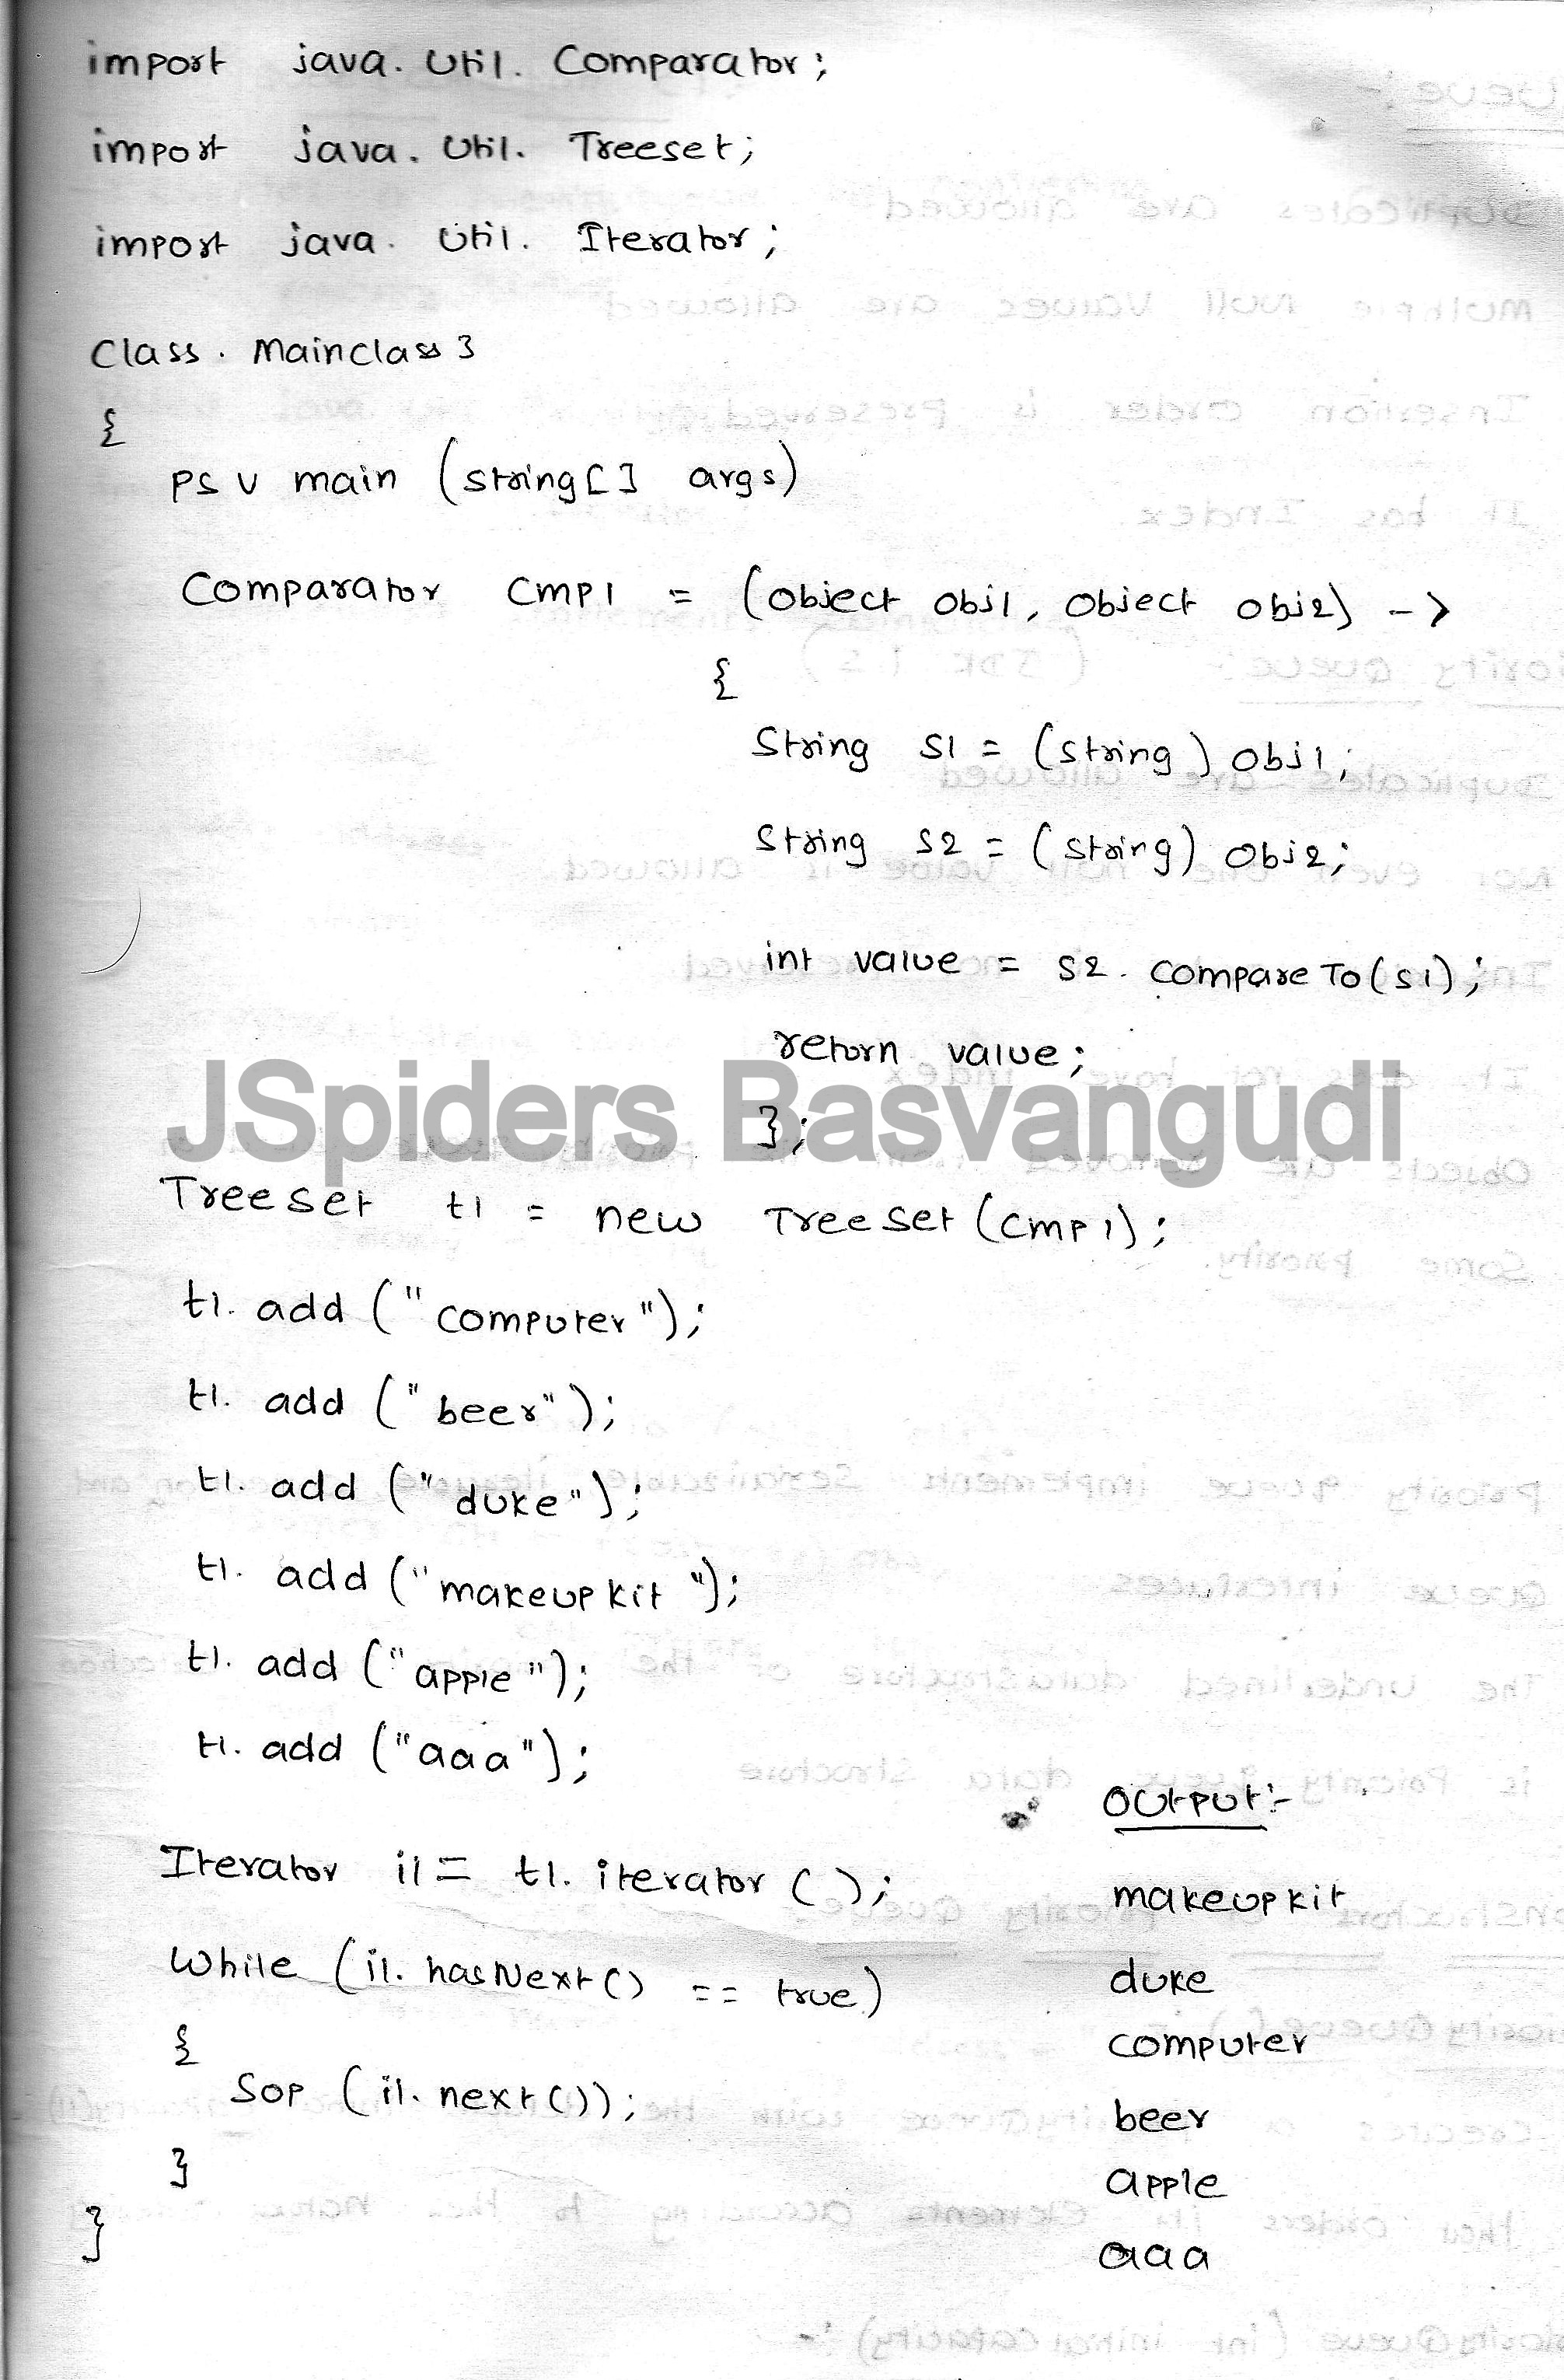 import java.util.Comparator;
import java.util.Treeset;
import java.util.Iterator;
Class. Mainclass3
{
PSV main (string[] args)
Comparator cmp1 = (object obj1, object obj2) ->
{
String s1 = (string) obj1;
String s2 = (string) obj2;
int value = s2.compareTo(s1);
return value;
JSpiders Basvangudi
};
TreeSet t1 = new TreeSet(cmp1);
t1.add("computer");
t1.add("beer");
t1.add("duke");
t1.add("makeupkit");
t1.add("apple");
t1.add("aaa");
Iterator i1 = t1.iterator();
While (i1.hasNext() == true)
{
Sop (i1.next());
}
}
Output:-
makeupkit
duke
computer
beer
apple
aaa